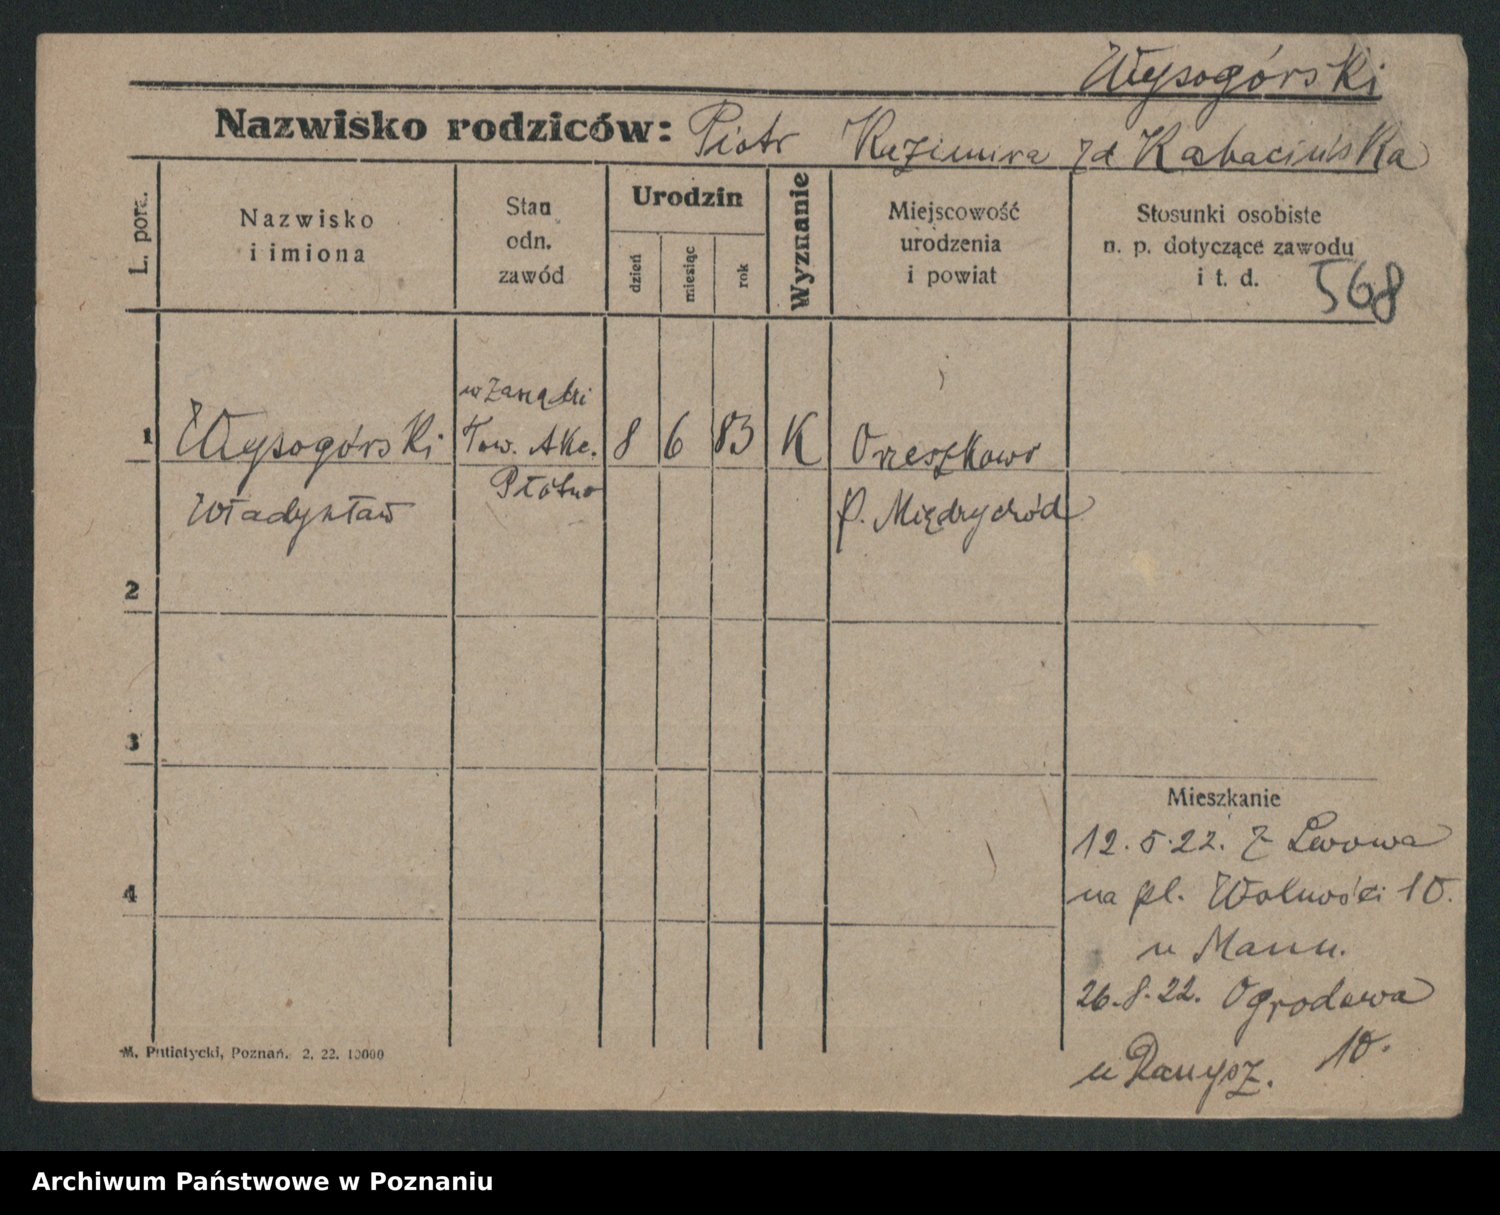 Wysogórski
Nazwisko rodziców: Piotr Kazimira zd Kabacińska
L. porz.
Nazwisko
i imiona
Stan
odn.
zawód
Urodzin
dzień
miesiąc
rok
Wyznanie
Miejscowość
urodzenia
i powiat
Stosunki osobiste
n. p. dotyczące zawodu
i t. d.
568
1 Wysogórski
Władysław
Tow. Akc.
Płótno
8 6 83 K
Orzeszkowo
p. Międzychód
2
3
4
Mieszkanie
12.5.22. z Lwowa
na pl. Wolności 10.
u Mann.
26.8.22. Ogrodowa
10.
u Danysz.
M. Putiatycki, Poznań. 2. 22. 10000
Archiwum Państwowe w Poznaniu